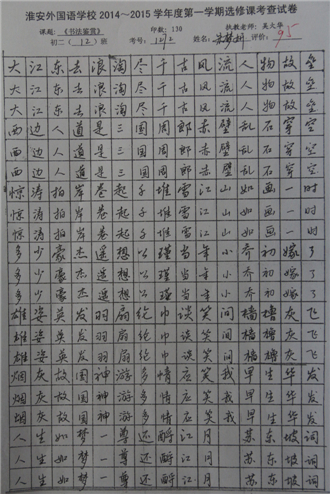 淮安外国语学校2014～2015学年度第一学期选修课考查试卷
课题：《书法鉴赏》 印数：130 执教老师：吴大华
初二（12）班 考号： 姓名： 评价：95
大江东去浪淘尽千古风流人物故垒
大江东去浪淘尽千古风流人物故垒
大江东去浪淘尽千古风流人物故垒
西边人道是三国周郎赤壁乱石穿空
西边人道是三国周郎赤壁乱石穿空
西边人道是三国周郎赤壁乱石穿空
惊涛拍岸卷起千堆雪江山如画一时
惊涛拍岸卷起千堆雪江山如画一时
惊涛拍岸卷起千堆雪江山如画一时
多少豪杰遥想公瑾当年小乔初嫁了
多少豪杰遥想公瑾当年小乔初嫁了
多少豪杰遥想公瑾当年小乔初嫁了
雄姿英发羽扇纶巾谈笑间樯橹灰飞
雄姿英发羽扇纶巾谈笑间樯橹灰飞
雄姿英发羽扇纶巾谈笑间樯橹灰飞
烟灰故国神游多情应笑我早生华发
烟灰故国神游多情应笑我早生华发
烟灰故国神游多情应笑我早生华发
人生如梦一尊还酹江月 苏东坡词
人生如梦一尊还酹江月 苏东坡词
人生如梦一尊还酹江月 苏东坡词